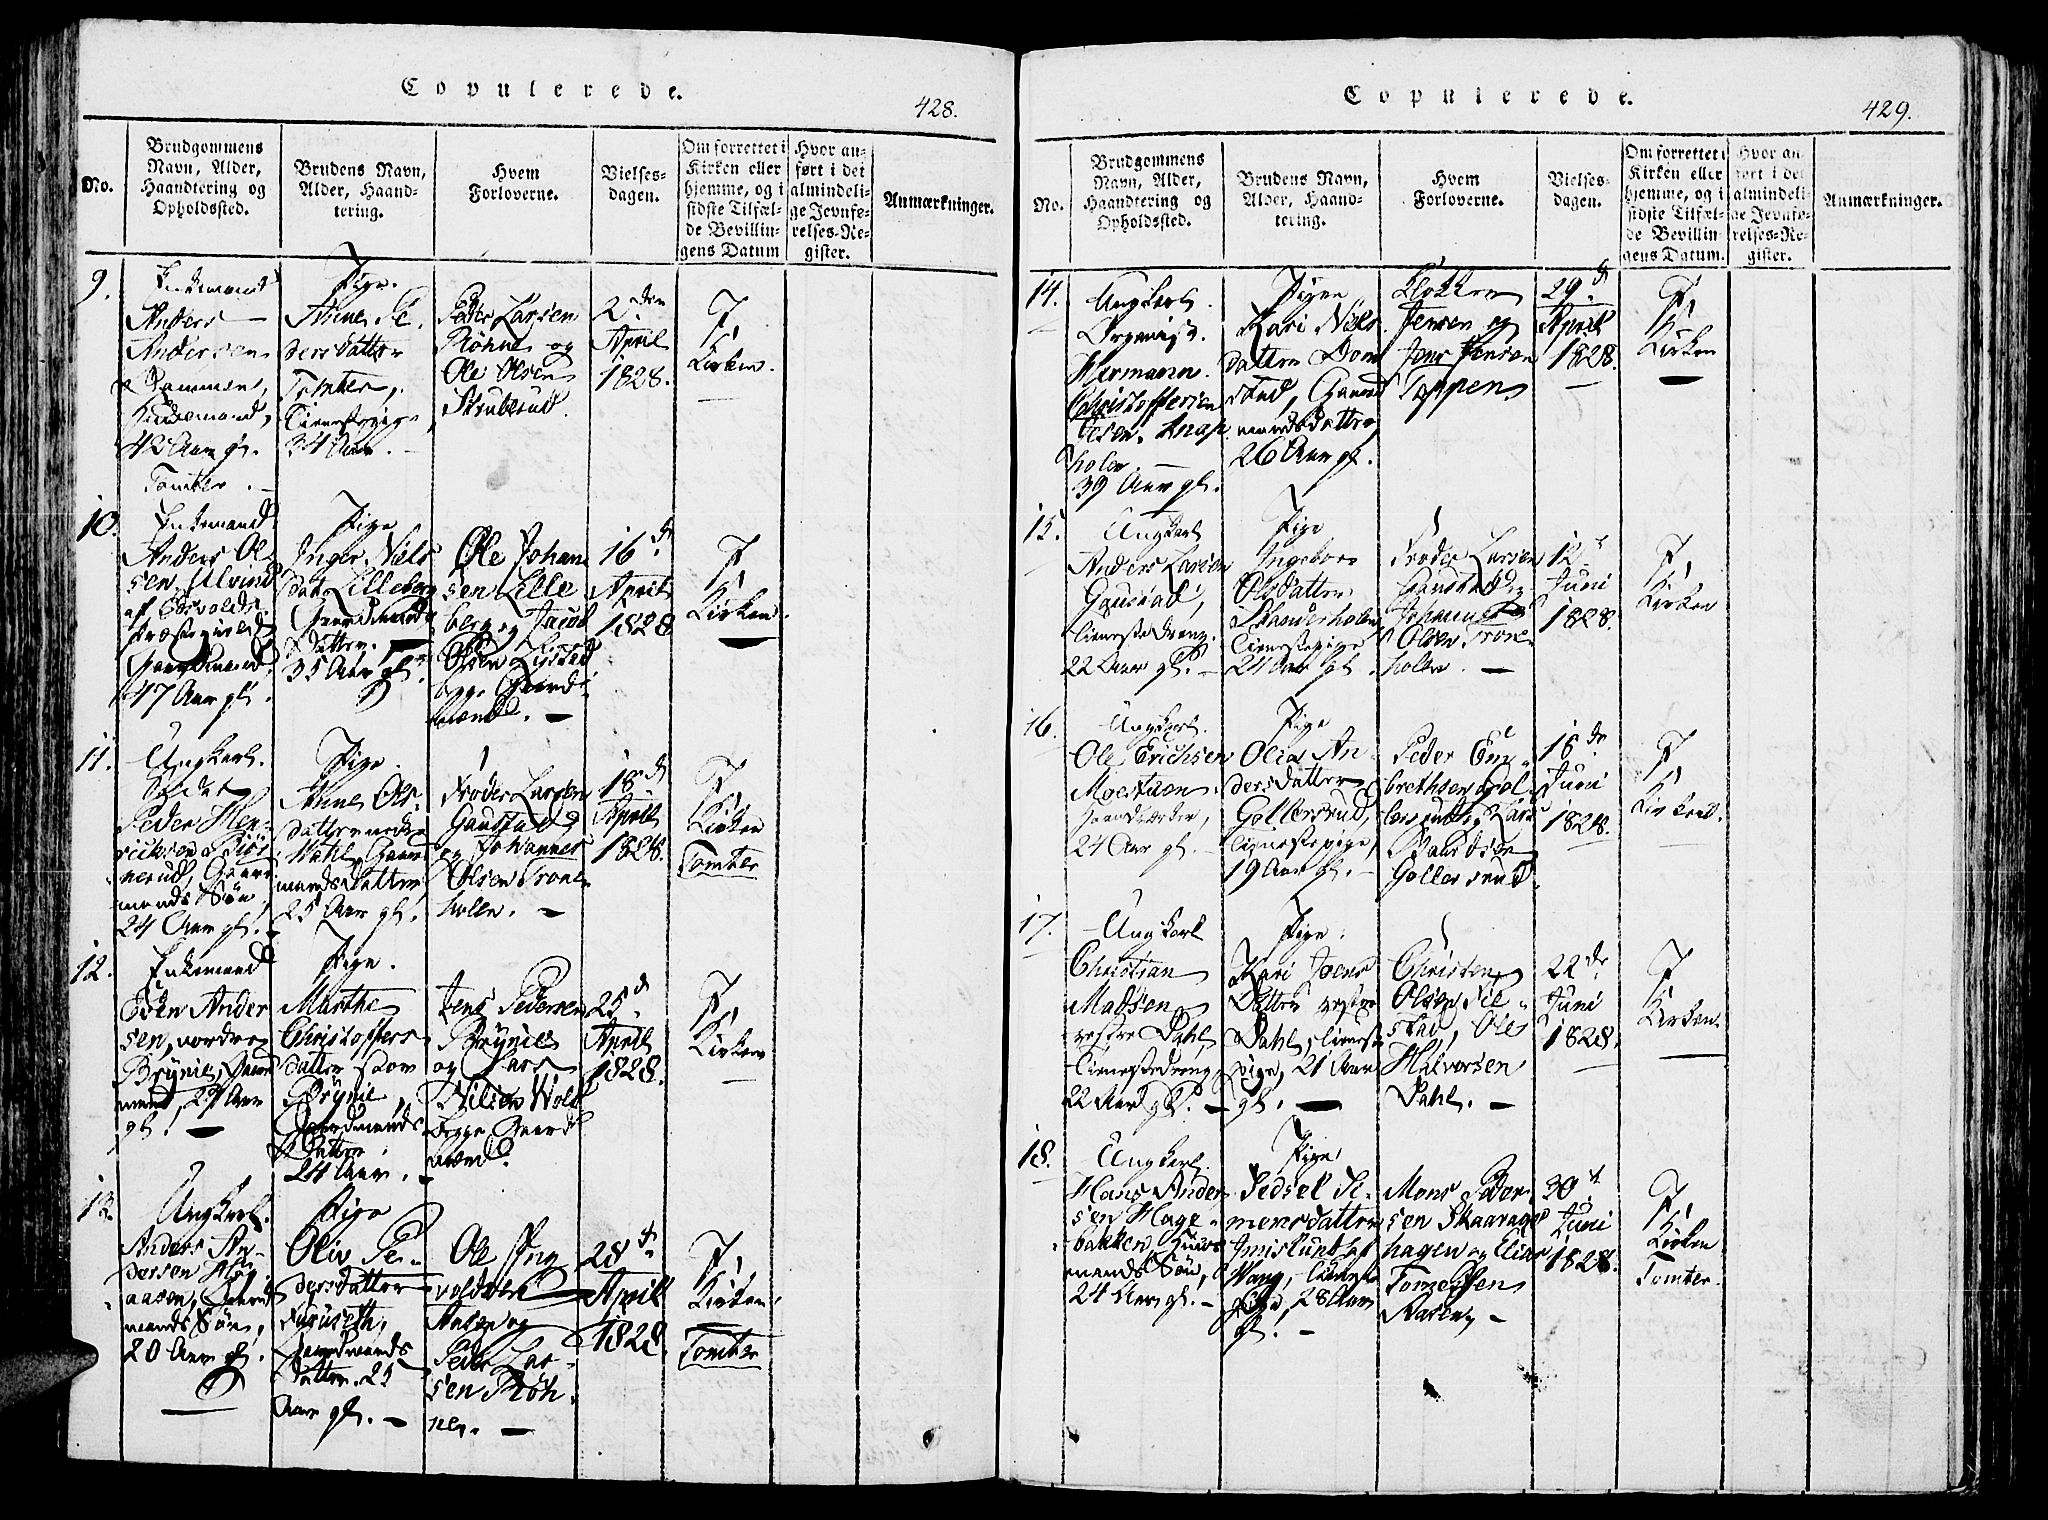 Copulerede.
428.
No.
Brudgommens Navn, Alder, Haandtering og Opholdssted.
Brudens Navn, Alder, Haandtering.
Hvem Forloverne.
Vielsesdagen.
Om forrettet i Kirken eller hjemme, og i sidste Tilfælde Bevillingens Datum
Hvor anført i det almindelige Jevnførelses-Register.
Anmærkninger.
9.
Enkemand
Anders
Andersen
42 Aar gl.
Tomter.
Pige.
Anne Pe
dersdatter
Tomter,
Tienestepige
34 Aar.
Peder Larsen
Röhne og
Ole Olsen
Struberud.
2den
April
1828.
I
Kirken.
10.
Enkemand
Anders Ol
sen,
af Edsvolds
Præstegield
Gaardmand,
47 Aar gl.
Pige
Inger Niels
dat. Lilleberg
Gaardmands
datter.
35 Aar gl.
Ole Johan
sen Lille
berg og Jacob
Olsen
begge Gaard
mænd.
16d
April
1828
I
Kirken.
11.
Ungkarl.
Soldat
Peder Hen
richsen
nerud, Gaard
mands Søn,
24 Aar gl.
Pige.
Anne Ols
datter nedre
Wahl, Gaard
mandsdatter
25 Aar gl.
Frode Larsen
Gaustad
og Johannes
Olsen Trone
holen.
18d
April
1828.
I
Kirken
Tomter
12.
Enkemand
Even Ander
sen, nordre
Brynie, Gaard
mand, 29 Aar
gl.
Pige.
Marthe
Christoffers
datter stor
Brynie,
Gaardmands
Datter
24 Aar.
Jens Pedersen
Brynie
og Lars
Nilsen Wold
begge Gaard
mænd.
25d
April
1828.
I
Kirken
13.
Ungkarl.
Anders An
dersen Høy
aasen, Gaard
mands Søn,
20 Aar gl.
Pige
Oliv Pe
dersdatter
Furuseth,
Gaardmands
datter. 25
Aar gl.
Ole Ing
voldsen
Aalen og
Peder Lar
sen Röh
ne.
28d
April
1828.
I
Kirken.
Tomter
Copulerede.
429.
No.
Brudgommens Navn, Alder, Haandtering og Opholdssted.
Brudens Navn, Alder, Haandtering.
Hvem Forloverne.
Vielsesdagen.
Om forrettet i Kirken eller hjemme, og i sidste Tilfælde Bevillingens Datum.
Hvor anført i det almindelige Jevnførelses-Register.
Anmærkninger.
14.
Ungkarl.
Organist
Hermann
Christoffersen
39 Aar gl.
Pigen
Kari Niels
datter Dom
stad, Gaard
mandsdatter
26 Aar gl.
Klokker
Jensen og
Jens Jensen
Toppen
29d
April
1828.
I
Kirken
15.
Ungkarl
Anders Larsen
Gaustad,
Tienestedreng.
22 Aar gl.
Pige
Ingeborg
Olsdatter
Skanderholen
Tienestepige
24 Aar gl.
Frode Larsen
Gaustad og
Johannes
Olsen Trone
holen.
12d
Juni
1828.
I
Kirken
16.
Ungkarl.
Ole Erichsen
Moestuen
24 Aar gl.
Pige
Olia An
dersdatter
Gollersrud,
Tienestepige,
19 Aar gl.
Peder Em
brethsen Gol
lersrud og Lars
Gollersrud
18de
Juni
1828.
I
Kirken.
17.
Ungkarl
Christian
Madsen
vestre Dahl,
Tienestedreng,
22 Aar gl.
Pige.
Kari Jens
Datter vestre
Dahl, Tieneste
pige, 21 Aar
gl.
Christen
Olsen
stad, Ole
Halvorsen
Dahl.
22de
Juni
1828.
I
Kirken.
18.
Ungkarl.
Hans Ander
sen Hage
bakken, Huus
mands Søn,
24 Aar gl.
Pige,
Sidsel Si
mensdatter
Imislund af
Wang, Tieneste
pige, 28 Aar
gl.
Mons Peder
sen Skaarager
hagen og Elias
Aasen,
30d
Juni
1828.
I
Kirken
Tomter.